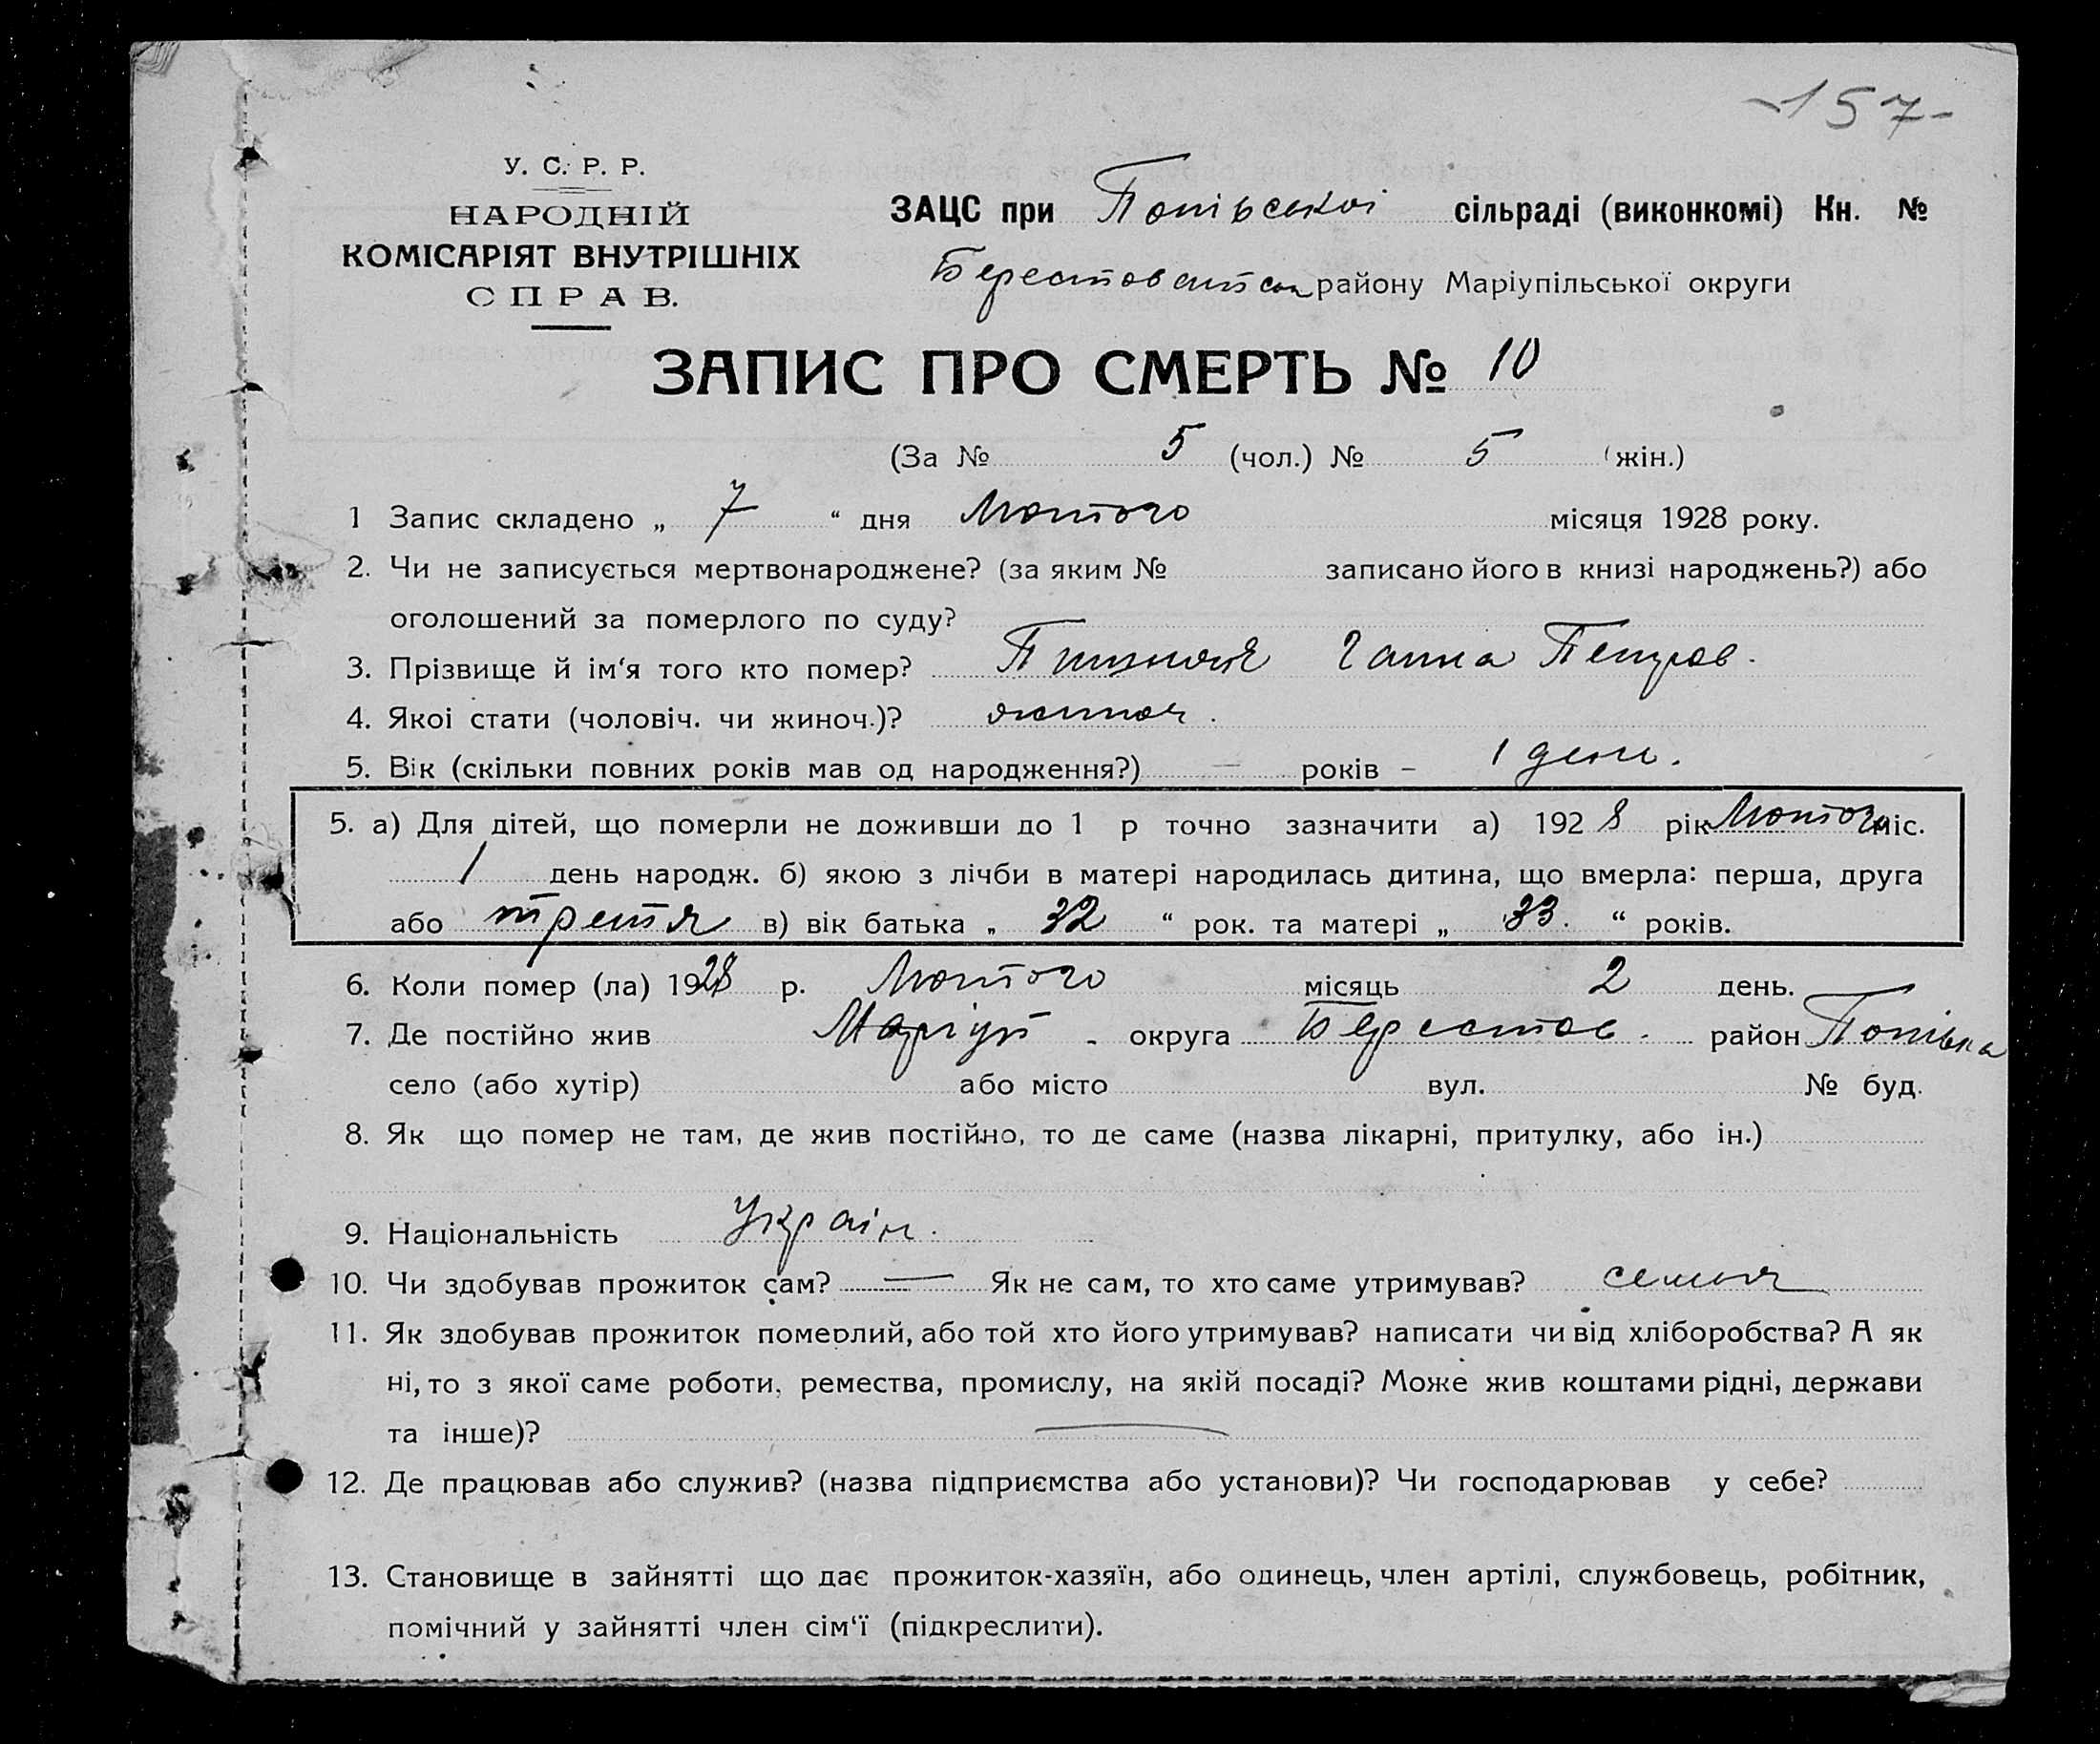 -157-
У. С. Р. Р.
НАРОДНІЙ
КОМІСАРІЯТ ВНУТРІШНІХ
СПРАВ.
ЗАЦС при Попівської сільраді (виконкомі) Кн. №
району Маріупільської округи
ЗАПИС ПРО СМЕРТЬ № 10
(За № 5 (чол.) № 5 (жін.)
1 Запис складено „ 7 “ дня Лютого місяця 1928 року.
2. Чи не записується мертвонароджене? (за яким № записано його в книзі народжень?) або
оголошений за померлого по суду?
3. Прізвище й ім‘я того кто помер? Ганна Петров.
4. Якоі стати (чоловіч. чи жиноч.)? жиноч.
5. Вік (скільки повних років мав од народження?) — років – 1 день.
5. а) Для дітей, що померли не доживши до 1 р точно зазначити а) 1928 рік Лютого міс.
1 день народж. б) якою з лічби в матері народилась дитина, що вмерла: перша, друга
або третя в) вік батька „ 32 “ рок. та матері „ 33. “ років.
6. Коли помер (ла) 1928 р. Лютого місяць 2 день.
7. Де постійно жив Маріуп - округа Берестов. район Попівка
село (або хутір) або місто вул. № буд.
8. Як що помер не там, де жив постійно, то де саме (назва лікарні, притулку, або ін.)
9. Національність Україн.
10. Чи здобував прожиток сам? — Як не сам, то хто саме утримував? семья
11. Як здобував прожиток померлий, або той хто його утримував? написати чи від хліборобства? А як
ні, то з якої саме роботи, ремества, промислу, на якій посаді? Може жив коштами рідні, держави
та інше)? —
12. Де працював або служив? (назва підприємства або установи)? Чи господарював у себе?
13. Становище в зайнятті що дає прожиток-хазяїн, або одинець, член артілі, службовець, робітник,
помічний у зайнятті член сім‘ї (підкреслити).